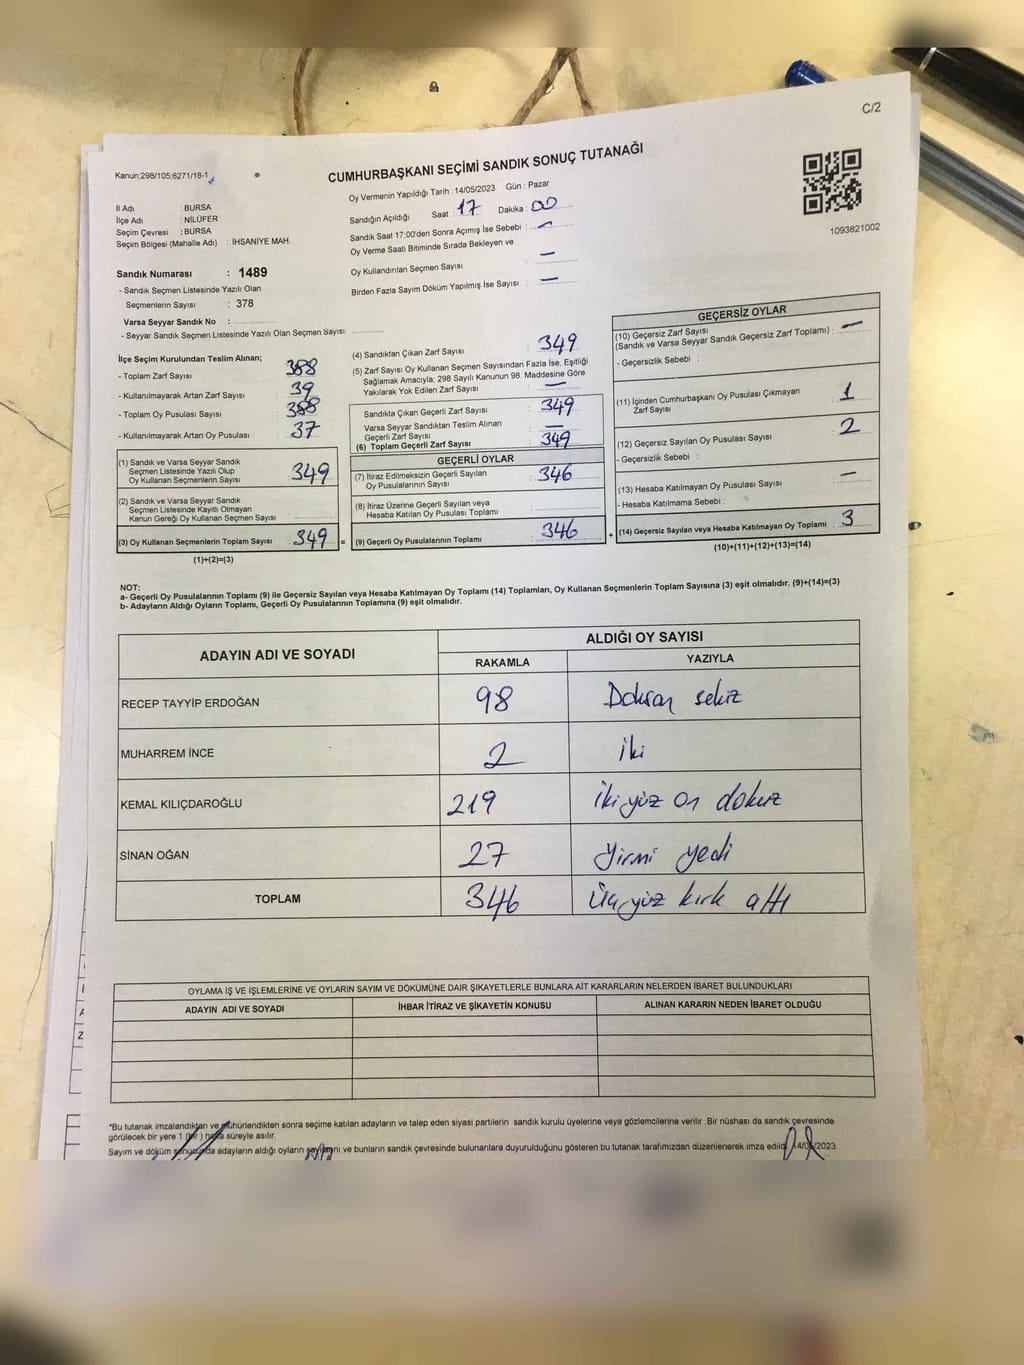 C/2
Kanun;298/105;6271/18-1
CUMHURBAŞKANI SEÇİMİ SANDIK SONUÇ TUTANAĞI
Oy Vermenin Yapıldığı Tarih :14/05/2023 Gün : Pazar
İl Adı : BURSA
İlçe Adı : NİLÜFER
Seçim Çevresi : BURSA
Seçim Bölgesi (Mahalle Adı) : İHSANİYE MAH.
Sandığın Açıldığı Saat : 17 Dakika : 00
Sandık Saat 17:00'den Sonra Açımış İse Sebebi : —
Oy Verme Saati Bitiminde Sırada Bekleyen ve
Oy Kullandırılan Seçmen Sayısı : —
Birden Fazla Sayım Döküm Yapılmış İse Sayısı : —
1093821002
Sandık Numarası : 1489
- Sandık Seçmen Listesinde Yazılı Olan
Seçmenlerin Sayısı : 378
Varsa Seyyar Sandık No :
- Seyyar Sandık Seçmen Listesinde Yazılı Olan Seçmen Sayısı:
İlçe Seçim Kurulundan Teslim Alınan;
- Toplam Zarf Sayısı : 388
- Kullanılmayarak Artan Zarf Sayısı : 39
- Toplam Oy Pusulası Sayısı : 388
- Kullanılmayarak Artan Oy Pusulası : 37
(1) Sandık ve Varsa Seyyar Sandık
Seçmen Listesinde Yazılı Olup
Oy Kullanan Seçmenlerin Sayısı : 349
(2) Sandık ve Varsa Seyyar Sandık
Seçmen Listesinde Kayıtlı Olmayan
Kanun Gereği Oy Kullanan Seçmen Sayısı :
(3) Oy Kullanan Seçmenlerin Toplam Sayısı : 349 =
(1)+(2)=(3)
(4) Sandıktan Çıkan Zarf Sayısı : 349
(5) Zarf Sayısı Oy Kullanan Seçmen Sayısından Fazla İse, Eşitliği
Sağlamak Amacıyla; 298 Sayılı Kanunun 98. Maddesine Göre
Yakılarak Yok Edilen Zarf Sayısı : —
Sandıkta Çıkan Geçerli Zarf Sayısı : 349
Varsa Seyyar Sandıktan Teslim Alınan
Geçerli Zarf Sayısı : —
(6) Toplam Geçerli Zarf Sayısı : 349
GEÇERLİ OYLAR
(7) İtiraz Edilmeksizin Geçerli Sayılan
Oy Pusulalarının Sayısı : 346
(8) İtiraz Üzerine Geçerli Sayılan veya
Hesaba Katılan Oy Pusulası Toplamı :
(9) Geçerli Oy Pusulalarının Toplamı : 346 +
GEÇERSİZ OYLAR
(10) Geçersiz Zarf Sayısı
(Sandık ve Varsa Seyyar Sandık Geçersiz Zarf Toplamı) : —
- Geçersizlik Sebebi :
(11) İçinden Cumhurbaşkanı Oy Pusulası Çıkmayan
Zarf Sayısı : 1
(12) Geçersiz Sayılan Oy Pusulası Sayısı : 2
- Geçersizlik Sebebi :
(13) Hesaba Katılmayan Oy Pusulası Sayısı : —
- Hesaba Katılmama Sebebi :
(14) Geçersiz Sayılan veya Hesaba Katılmayan Oy Toplamı : 3
(10)+(11)+(12)+(13)=(14)
NOT:
a- Geçerli Oy Pusulalarının Toplamı (9) ile Geçersiz Sayılan veya Hesaba Katılmayan Oy Toplamı (14) Toplamları, Oy Kullanan Seçmenlerin Toplam Sayısına (3) eşit olmalıdır. (9)+(14)=(3)
b- Adayların Aldığı Oyların Toplamı, Geçerli Oy Pusulalarının Toplamına (9) eşit olmalıdır.
ADAYIN ADI VE SOYADI ALDIĞI OY SAYISI
RAKAMLA YAZIYLA
RECEP TAYYİP ERDOĞAN 98 Doksan sekiz
MUHARREM İNCE 2 iki
KEMAL KILIÇDAROĞLU 219 iki yüz on dokuz
SİNAN OĞAN 27 yirmi yedi
TOPLAM 346 Üç yüz kırk altı
OYLAMA İŞ VE İŞLEMLERİNE VE OYLARIN SAYIM VE DÖKÜMÜNE DAİR ŞİKAYETLERLE BUNLARA AİT KARARLARIN NELERDEN İBARET BULUNDUKLARI
ADAYIN ADI VE SOYADI İHBAR İTİRAZ VE ŞİKAYETİN KONUSU ALINAN KARARIN NEDEN İBARET OLDUĞU
*Bu tutanak imzalandıktan ve mühürlendikten sonra seçime katılan adayların ve talep eden siyasi partilerin sandık kurulu üyelerine veya gözlemcilerine verilir .Bir nüshası da sandık çevresinde
görülecek bir yere 1 (bir) hafta süreyle asılır.
Sayım ve döküm sonucunda adayların aldığı oyların sayılarını ve bunların sandık çevresinde bulunanlara duyurulduğunu gösteren bu tutanak tarafımızdan düzenlenerek imza edildi. 14/05/2023